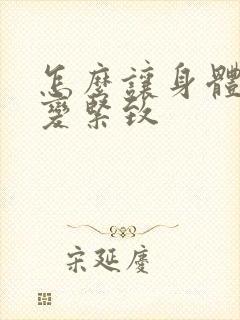 怎麼讓身體
變緊致
宋延慶